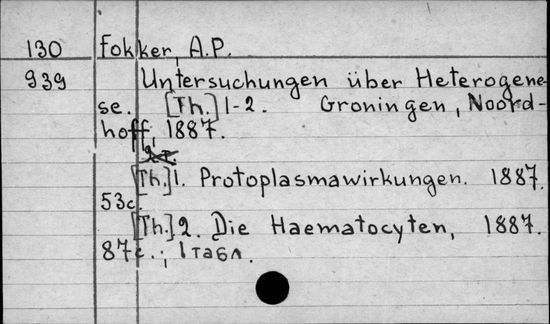 130 Fokker, A.P.
939 Untersuchungen über Heterogene-
se. [Th.] 1-2. Groningen, Noord-
hoff, 1887.
[Th.] 1. Protoplasmawirkungen. 1887.
53c.
[Th.] 2. Die Haematocyten, 1887.
87c.; 1 табл.